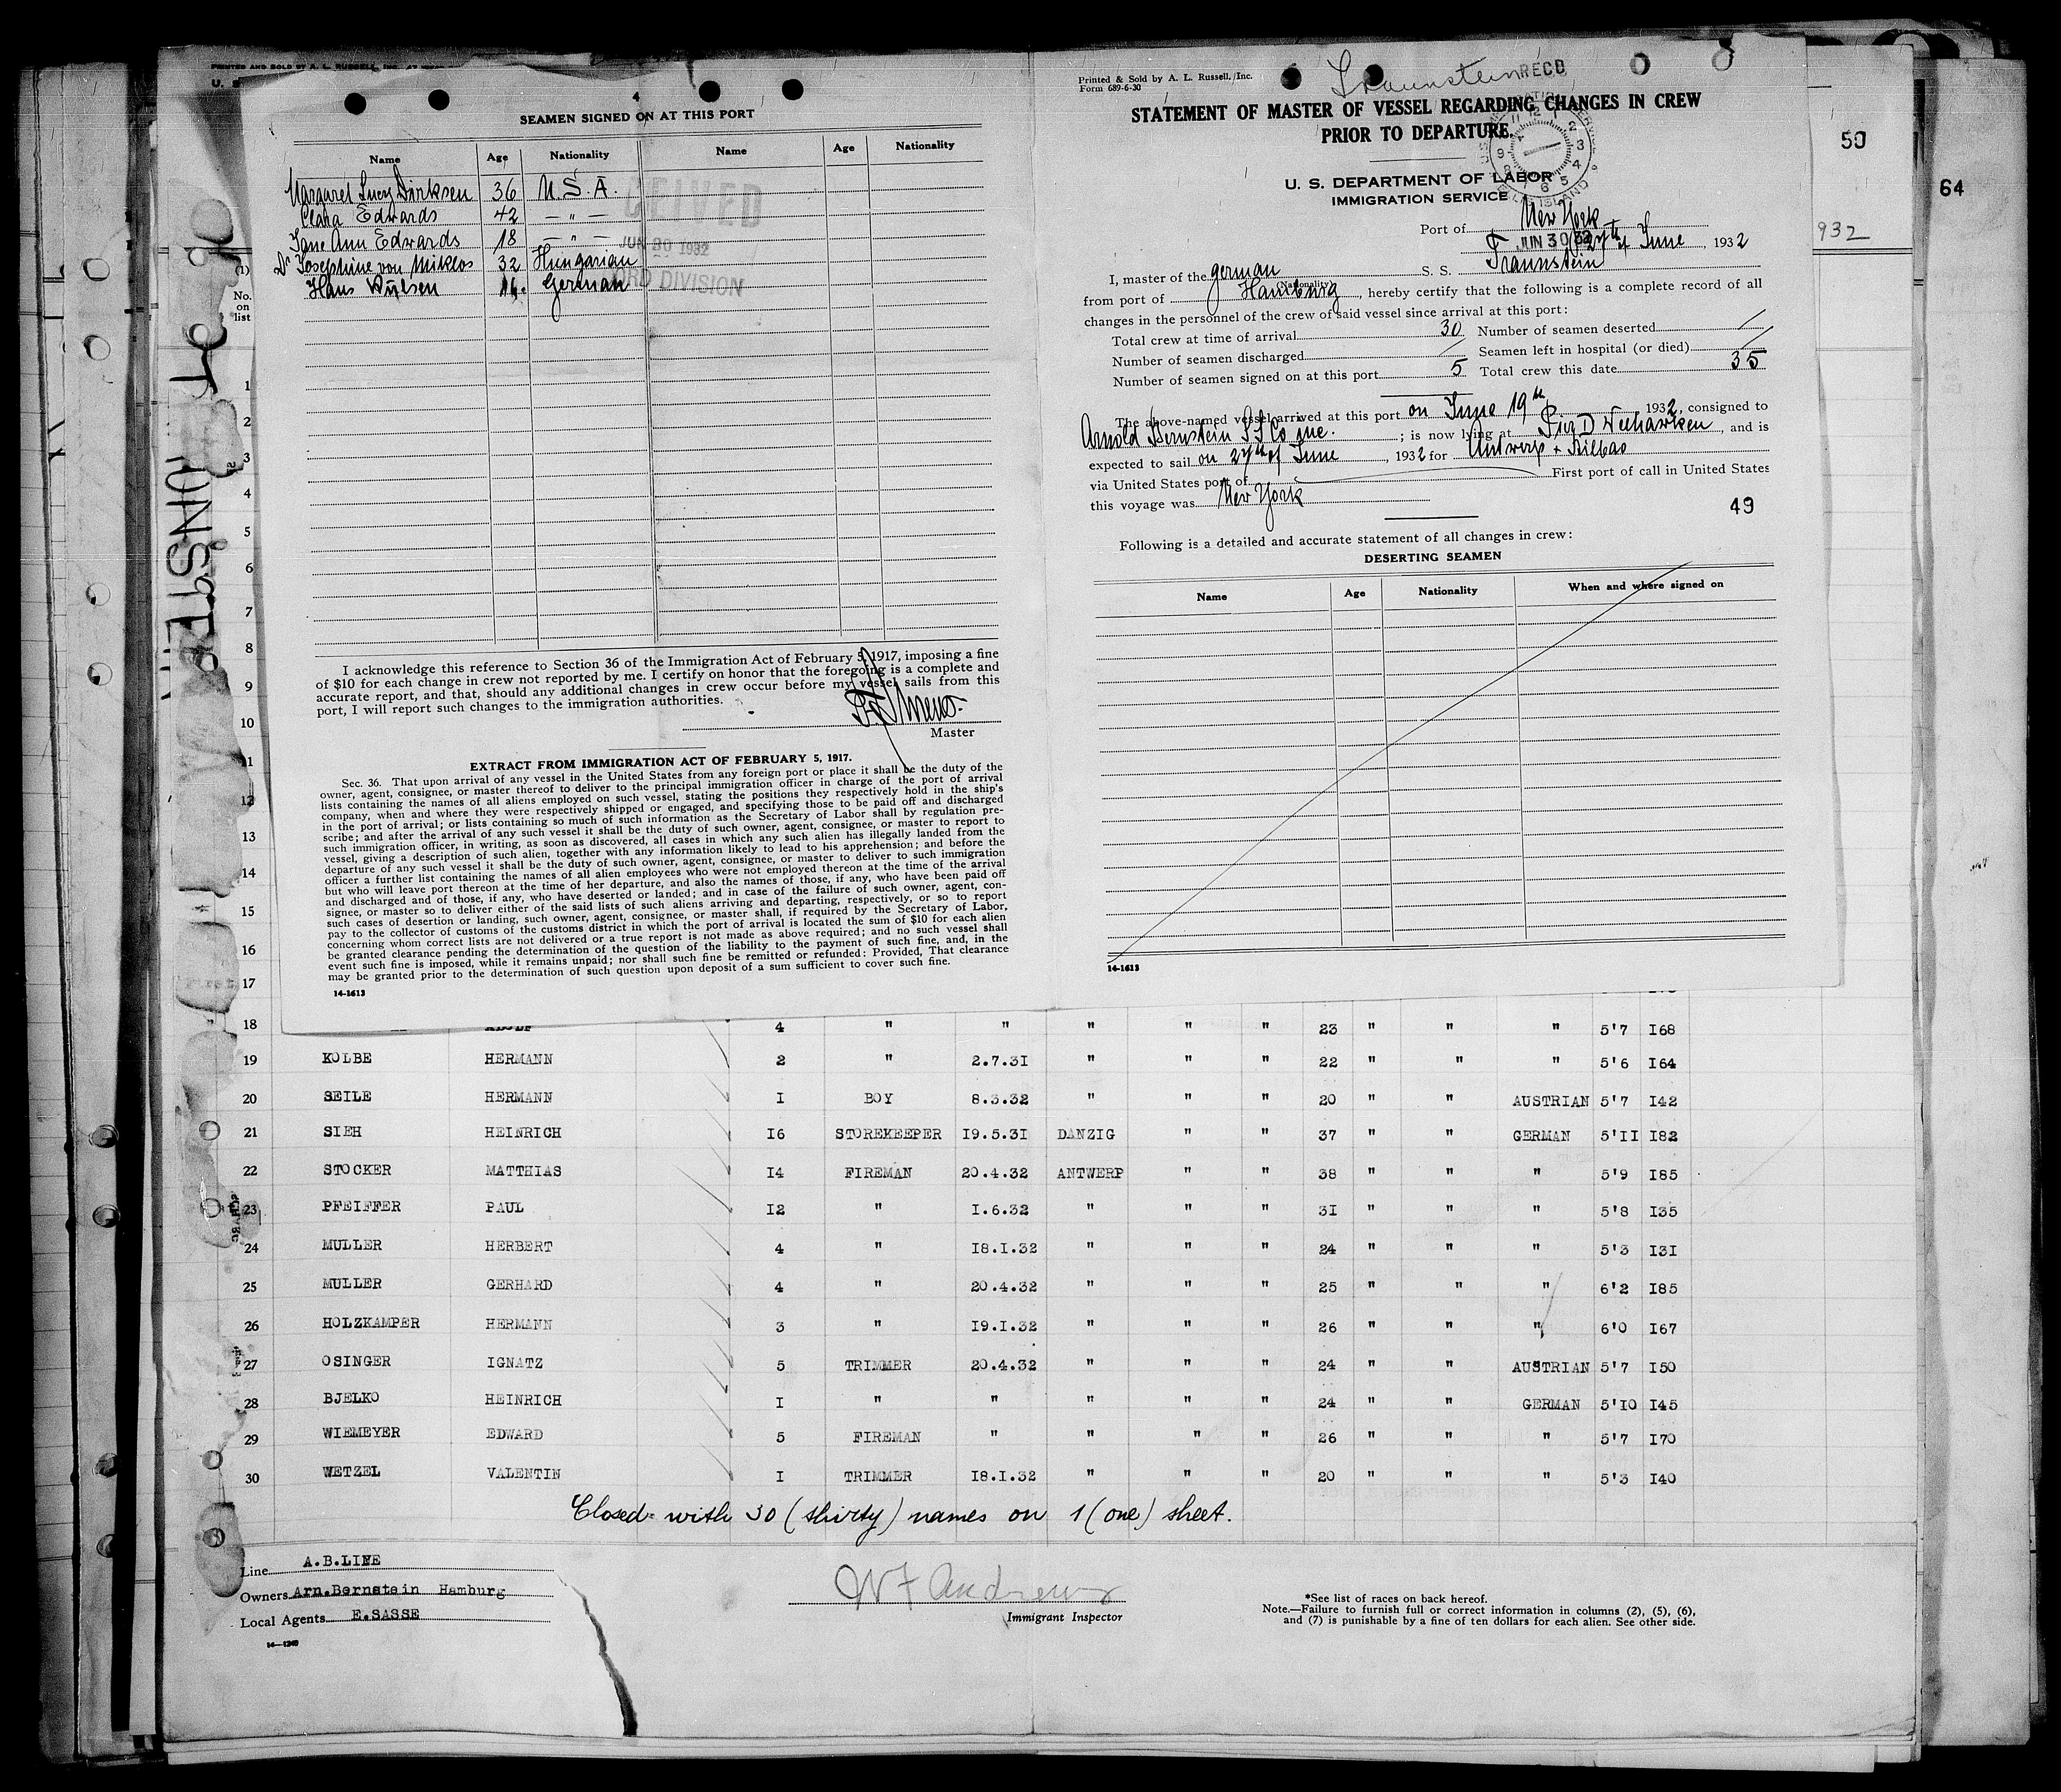 PRINTED AND SOLD BY A. L. RUSSELL, INC.
4
SEAMEN SIGNED ON AT THIS PORT
Name Age Nationality Name Age Nationality
Margaret Lucy Dirksen 36 U.S.A.
Clara Edwards 42 — " —
Jane Ann Edwards 18 — " —
Dr Josephine von Miklos 32 Hungarian
Hans Wülsen 16. German
JUN 30 1932
DIVISION
I acknowledge this reference to Section 36 of the Immigration Act of February 5, 1917, imposing a fine
of $10 for each change in crew not reported by me. I certify on honor that the foregoing is a complete and
accurate report, and that, should any additional changes in crew occur before my vessel sails from this
port, I will report such changes to the immigration authorities.
Master
EXTRACT FROM IMMIGRATION ACT OF FEBRUARY 5, 1917.
Sec. 36. That upon arrival of any vessel in the United States from any foreign port or place it shall be the duty of the
owner, agent, consignee, or master thereof to deliver to the principal immigration officer in charge of the port of arrival
lists containing the names of all aliens employed on such vessel, stating the positions they respectively hold in the ship's
company, when and where they were respectively shipped or engaged, and specifying those to be paid off and discharged
in the port of arrival; or lists containing so much of such information as the Secretary of Labor shall by regulation pre-
scribe; and after the arrival of any such vessel it shall be the duty of such owner, agent, consignee, or master to report to
such immigration officer, in writing, as soon as discovered, all cases in which any such alien has illegally landed from the
vessel, giving a description of such alien, together with any information likely to lead to his apprehension; and before the
departure of any such vessel it shall be the duty of such owner, agent, consignee, or master to deliver to such immigration
officer a further list containing the names of all alien employees who were not employed thereon at the time of the arrival
but who will leave port thereon at the time of her departure, and also the names of those, if any, who have been paid off
and discharged and of those, if any, who have deserted or landed; and in case of the failure of such owner, agent, con-
signee, or master so to deliver either of the said lists of such aliens arriving and departing, respectively, or so to report
such cases of desertion or landing, such owner, agent, consignee, or master shall, if required by the Secretary of Labor,
pay to the collector of customs of the customs district in which the port of arrival is located the sum of $10 for each alien
concerning whom correct lists are not delivered or a true report is not made as above required; and no such vessel shall
be granted clearance pending the determination of the question of the liability to the payment of such fine, and, in the
event such fine is imposed, while it remains unpaid; nor shall such fine be remitted or refunded: Provided, That clearance
may be granted prior to the determination of such question upon deposit of a sum sufficient to cover such fine.
14-1613
Printed & Sold by A. L. Russell, Inc.
Form 689-6-30
Traunstein RECD
STATEMENT OF MASTER OF VESSEL REGARDING CHANGES IN CREW
PRIOR TO DEPARTURE
U. S. DEPARTMENT OF LABOR
IMMIGRATION SERVICE
Port of New York
JUN 30 32 27th of June, 1932
I, master of the german S. S. Traunstein
(Nationality)
from port of Hamburg, hereby certify that the following is a complete record of all
changes in the personnel of the crew of said vessel since arrival at this port:
Total crew at time of arrival 30 Number of seamen deserted /
Number of seamen discharged / Seamen left in hospital (or died) /
Number of seamen signed on at this port 5 Total crew this date 35
The above-named vessel arrived at this port on June 19th, 1932, consigned to
Arnold Bernstein S S Co inc.; is now lying at Pier D Weehawken, and is
expected to sail on 27th of June, 1932 for Antwerp + Bilbao
via United States port of First port of call in United States
this voyage was New York
49
Following is a detailed and accurate statement of all changes in crew:
DESERTING SEAMEN
Name Age Nationality When and where signed on
14-1613
50
64
932
No. on list
1
2
3
4
5
6
7
8
9
10
11
12
13
14
15
16
17
18 ADOLF 4 " " " " " 23 " " " 5'7 I68
19 KOLBE HERMANN 2 " 2.7.3I " " " 22 " " " 5'6 I64
20 SEILE HERMANN I BOY 8.3.32 " " " 20 " " AUSTRIAN 5'7 I42
21 SIEH HEINRICH I6 STOREKEEPER I9.5.3I DANZIG " " 37 " " GERMAN 5'II I82
22 STOCKER MATTHIAS I4 FIREMAN 20.4.32 ANTWERP " " 38 " " " 5'9 I85
23 PFEIFFER PAUL I2 " I.6.32 " " " 3I " " " 5'8 I35
24 MULLER HERBERT 4 " I8.I.32 " " " 24 " " " 5'3 I3I
25 MULLER GERHARD 4 " 20.4.32 " " " 25 " " " 6'2 I85
26 HOLZKAMPER HERMANN 3 " I9.I.32 " " " 26 " " " 6'0 I67
27 OSINGER IGNATZ 5 TRIMMER 20.4.32 " " " 24 " " AUSTRIAN 5'7 I50
28 BJELKO HEINRICH I " " " " " 24 " " GERMAN 5'I0 I45
29 WIEMEYER EDWARD 5 FIREMAN " " " " 26 " " " 5'7 I70
30 WETZEL VALENTIN I TRIMMER I8.I.32 " " " 20 " " " 5'3 I40
Closed with 30 (thirty) names on 1 (one) sheet.
Line A.B.LINE
Owners Arn.Bernstein Hamburg
Local Agents E.SASSE
14—1240
W F Andrews
Immigrant Inspector
*See list of races on back hereof.
Note.—Failure to furnish full or correct information in columns (2), (5), (6),
and (7) is punishable by a fine of ten dollars for each alien. See other side.